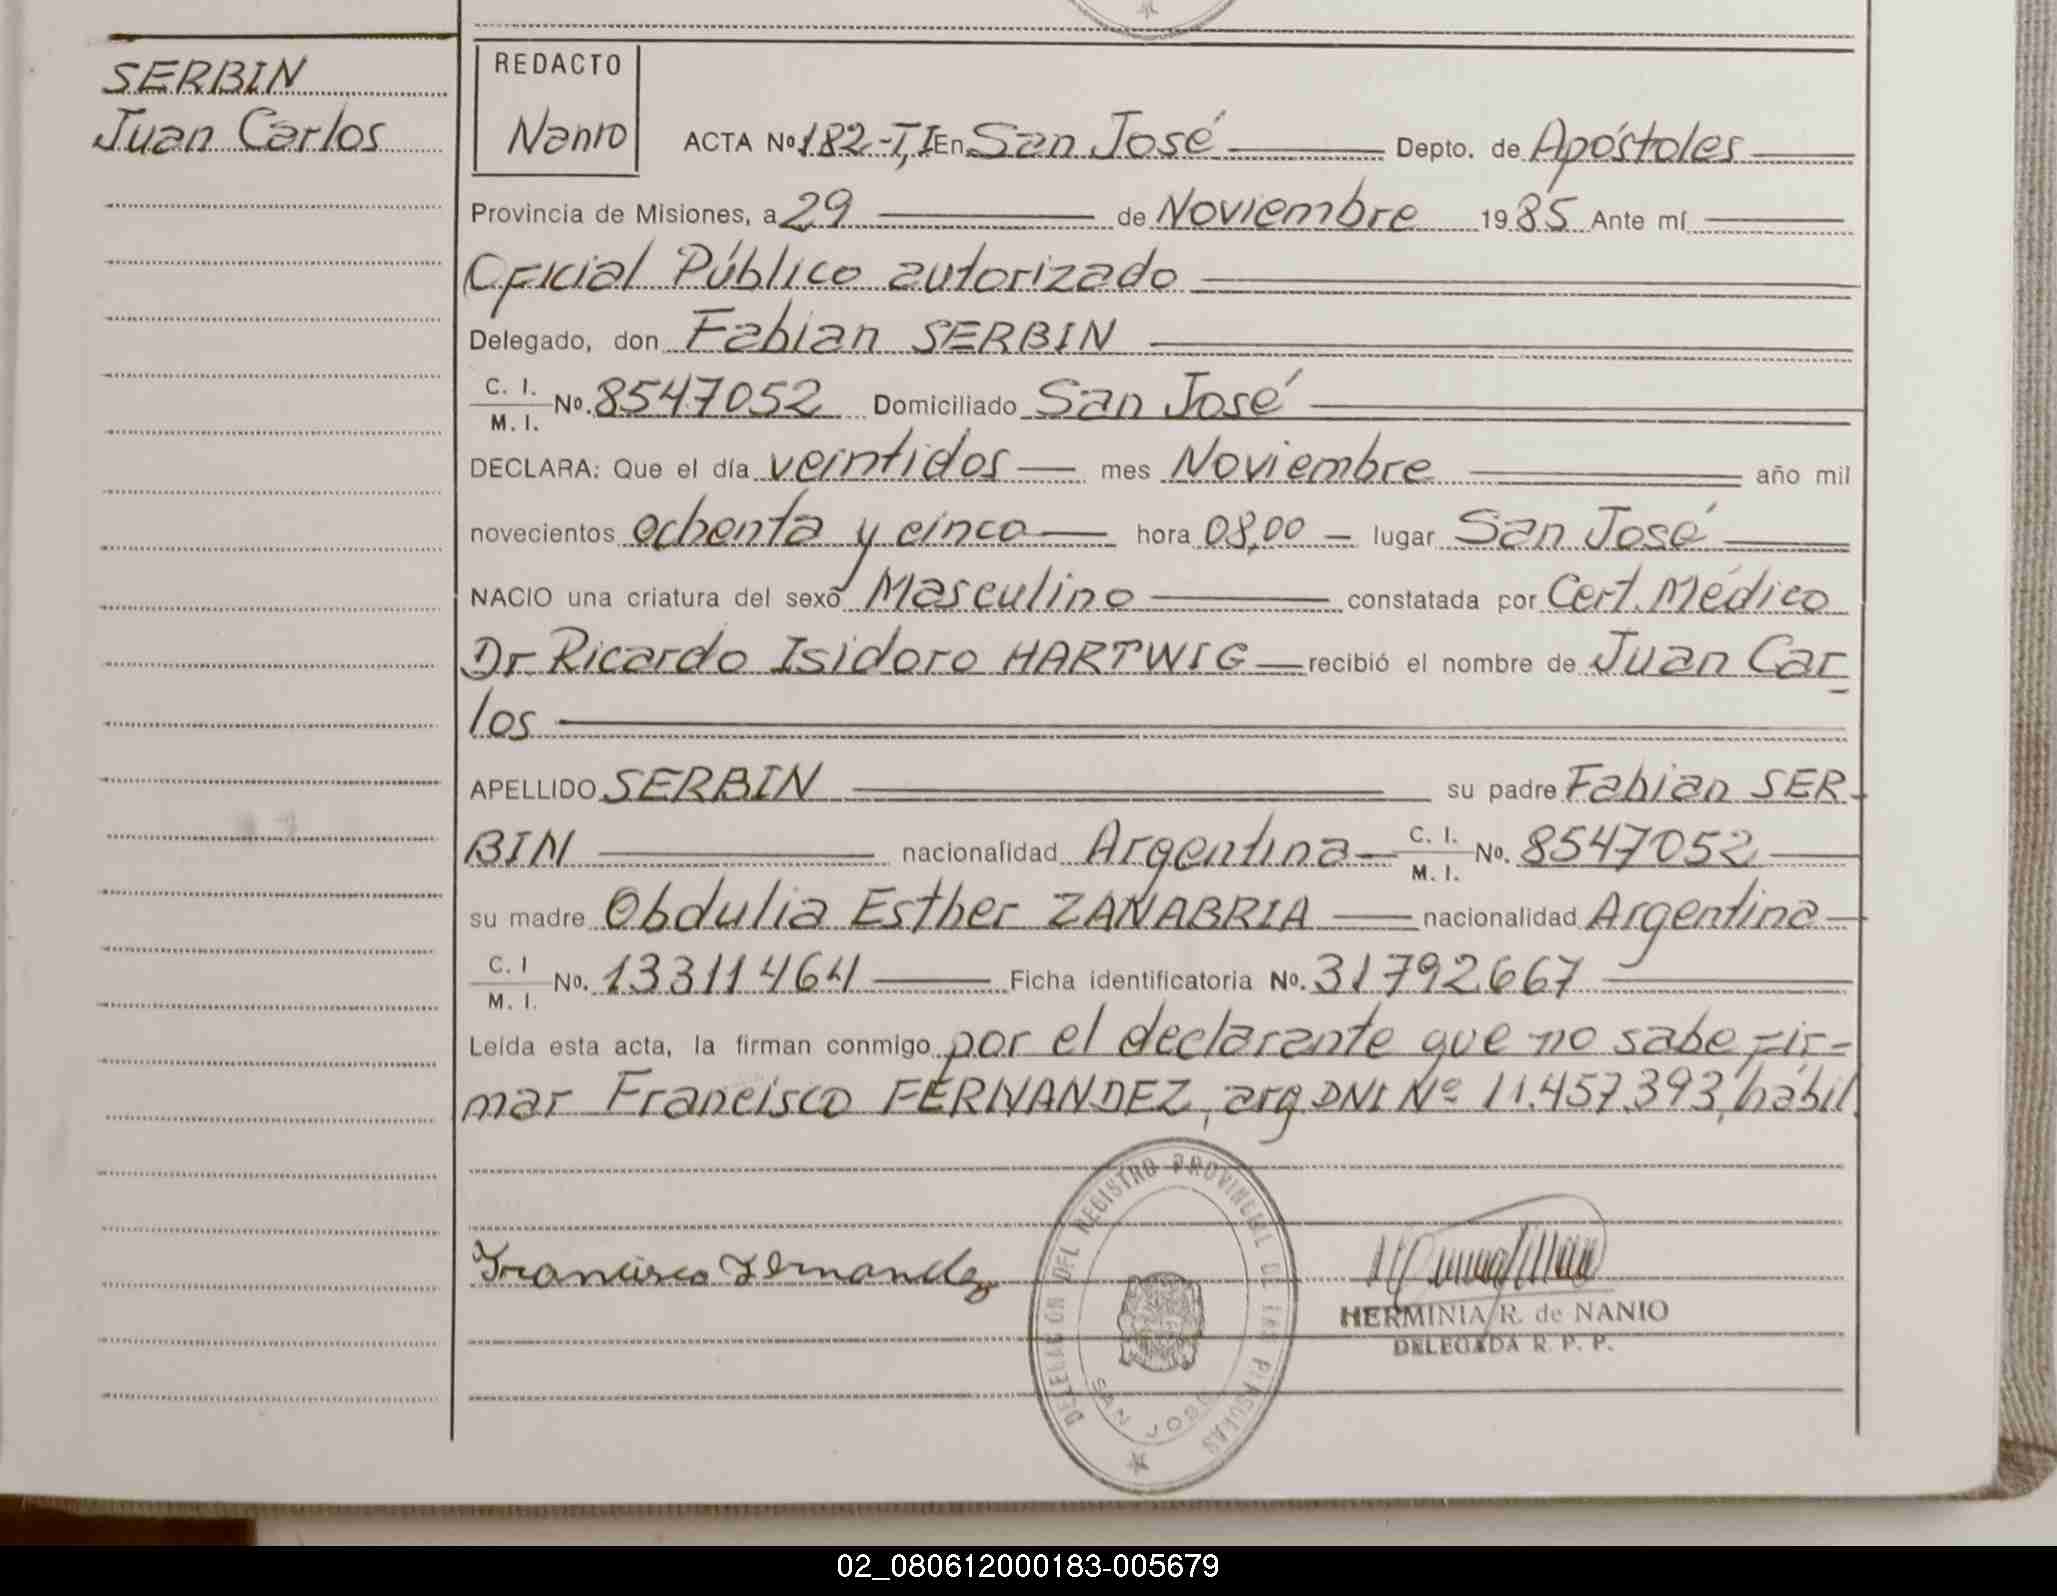 SERBIN
Juan Carlos
REDACTO
Nanio
ACTA Nº 182-T,I En San José Depto. de Apóstoles
Provincia de Misiones, a 29 de Noviembre 1985 Ante mí
Oficial Público autorizado
Delegado, don Fabian SERBIN
C. I.
M. I. Nº. 8547052 Domiciliado San José
DECLARA: Que el día veintidos mes Noviembre año mil
novecientos ochenta y cinco hora 08,00 lugar San José
NACIO una criatura del sexo Masculino constatada por Cert. Médico
Dr. Ricardo Isidoro HARTWIG recibió el nombre de Juan Car-
los
APELLIDO SERBIN su padre Fabian SER-
BIN nacionalidad Argentina C. I. M. I. Nº. 8547052
su madre Obdulia Esther ZANABRIA nacionalidad Argentina
C. I
M. I. Nº. 13311464 Ficha identificatoria Nº. 31792667
Leída esta acta, la firman conmigo por el declarante que no sabe fir-
mar Francisco FERNANDEZ, arg DNI Nº 11.457.393, hábil.
Francisco Fernandez
DELEGACION DEL REGISTRO PROVINCIAL DE LAS PERSONAS
SAN JOSE
HERMINIA R. de NANIO
DELEGADA R. P. P.
02_080612000183-005679